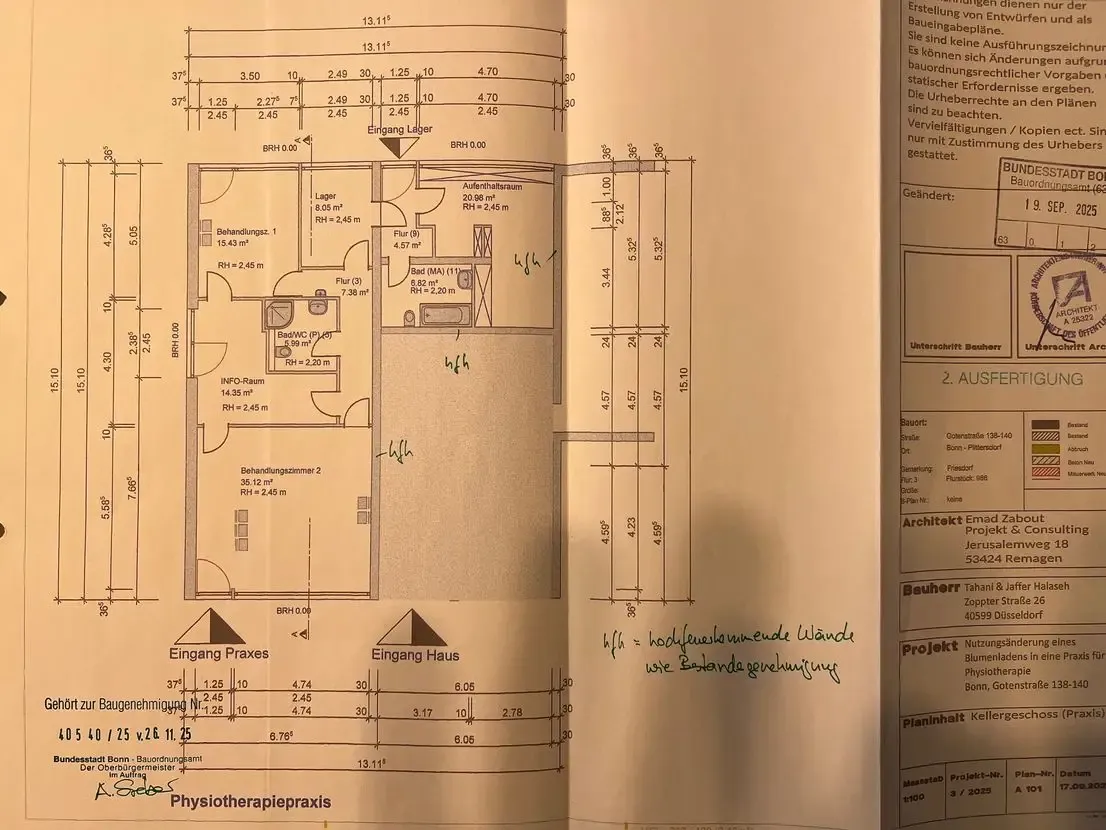 13.11⁵
13.11⁵
37⁵ 3.50 10 2.49 30 1.25 10 4.70 30
37⁵ 1.25 2.27⁵ 7⁵ 2.49 30 1.25 10 4.70 30
2.45 2.45 2.45 2.45 2.45
Eingang Lager
BRH 0.00
A
BRH 0.00
Behandlungsz. 1
15.43 m²
RH = 2,45 m
Lager
8.05 m²
RH = 2,45 m
Aufenthaltsraum
20.98 m²
RH = 2,45 m
Flur (9)
4.57 m²
Flur (3)
7.38 m²
Bad (MA) (11)
6.82 m²
RH = 2,20 m
hfh
Bad/WC (P)
5.99 m²
RH = 2,20 m
hfh
INFO-Raum
14.35 m²
RH = 2,45 m
hfh
Behandlungszimmer 2
35.12 m²
RH = 2,45 m
BRH 0.00
15.10
15.10
36⁵
4.28⁵
10
4.30
10
5.58⁵
36⁵
5.05
2.38⁵
2.45
7.66⁵
36⁵ 36⁵ 36⁵
1.00
88⁵
2.12
3.44
5.32⁵ 5.32⁵
24 24 24
4.57 4.57 4.57
4.59⁵ 4.23 4.59⁵
36⁵
15.10
BRH 0.00
A
Eingang Praxes
Eingang Haus
hfh = hochfeuerhemmende Wände
wie Bestandsgenehmigung
37⁵ 1.25 10 4.74 30 6.05 30
2.45 2.45
37⁵ 1.25 10 4.74 30 3.17 10 2.78 30
6.76⁵ 6.05 30
13.11⁵
Gehört zur Baugenehmigung Nr.
405 40 / 25 v. 26. 11. 25
Bundesstadt Bonn - Bauordnungsamt
Der Oberbürgermeister
Im Auftrag
Physiotherapiepraxis
nungen dienen nur der
Erstellung von Entwürfen und als
Baueingabepläne.
Sie sind keine Ausführungszeichnun
Es können sich Änderungen aufgru
bauordnungsrechtlicher Vorgaben
statischer Erfordernisse ergeben.
Die Urheberrechte an den Plänen
sind zu beachten.
Vervielfältigungen / Kopien ect. Sin
nur mit Zustimmung des Urhebers
gestattet.
Geändert:
BUNDESSTADT BO
Bauordnungsamt (63
19. SEP. 2025
63 0. 1. 2
ARCHITEKT
A 25322
Unterschrift Bauherr
Unterschrift Arc
2. AUSFERTIGUNG
Bauort:
Straße: Gotenstraße 138-140
Ort: Bonn - Plittersdorf
Gemarkung: Friesdorf
Flur: 3 Flurstück: 986
Größe:
B-Plan Nr.: keine
Bestand
Bestand
Abbruch
Beton Neu
Mauerwerk Neu
Architekt Emad Zabout
Projekt & Consulting
Jerusalemweg 18
53424 Remagen
Bauherr Tahani & Jaffer Halaseh
Zoppter Straße 26
40599 Düsseldorf
Projekt Nutzungsänderung eines
Blumenladens in eine Praxis für
Physiotherapie
Bonn, Gotenstraße 138-140
Planinhalt Kellergeschoss (Praxis)
Massstab Projekt-Nr. Plan-Nr. Datum
1:100 3 / 2025 A 101 17.09.202